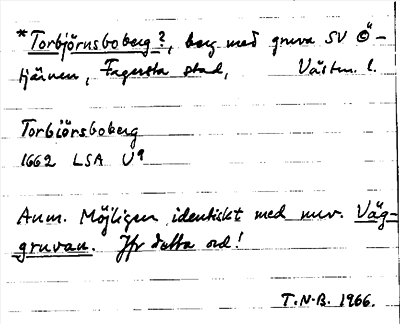 *Torbjörnsboberg?, berg med gruva SV Ö-
tjärnen, Fagersta stad, Västm. l.
Torbiörsboberg
1662 LSA U9
Anm. Möjligen identiskt med nuv. Väg-
gruvan. Jfr detta ord!
T.N.B. 1966.